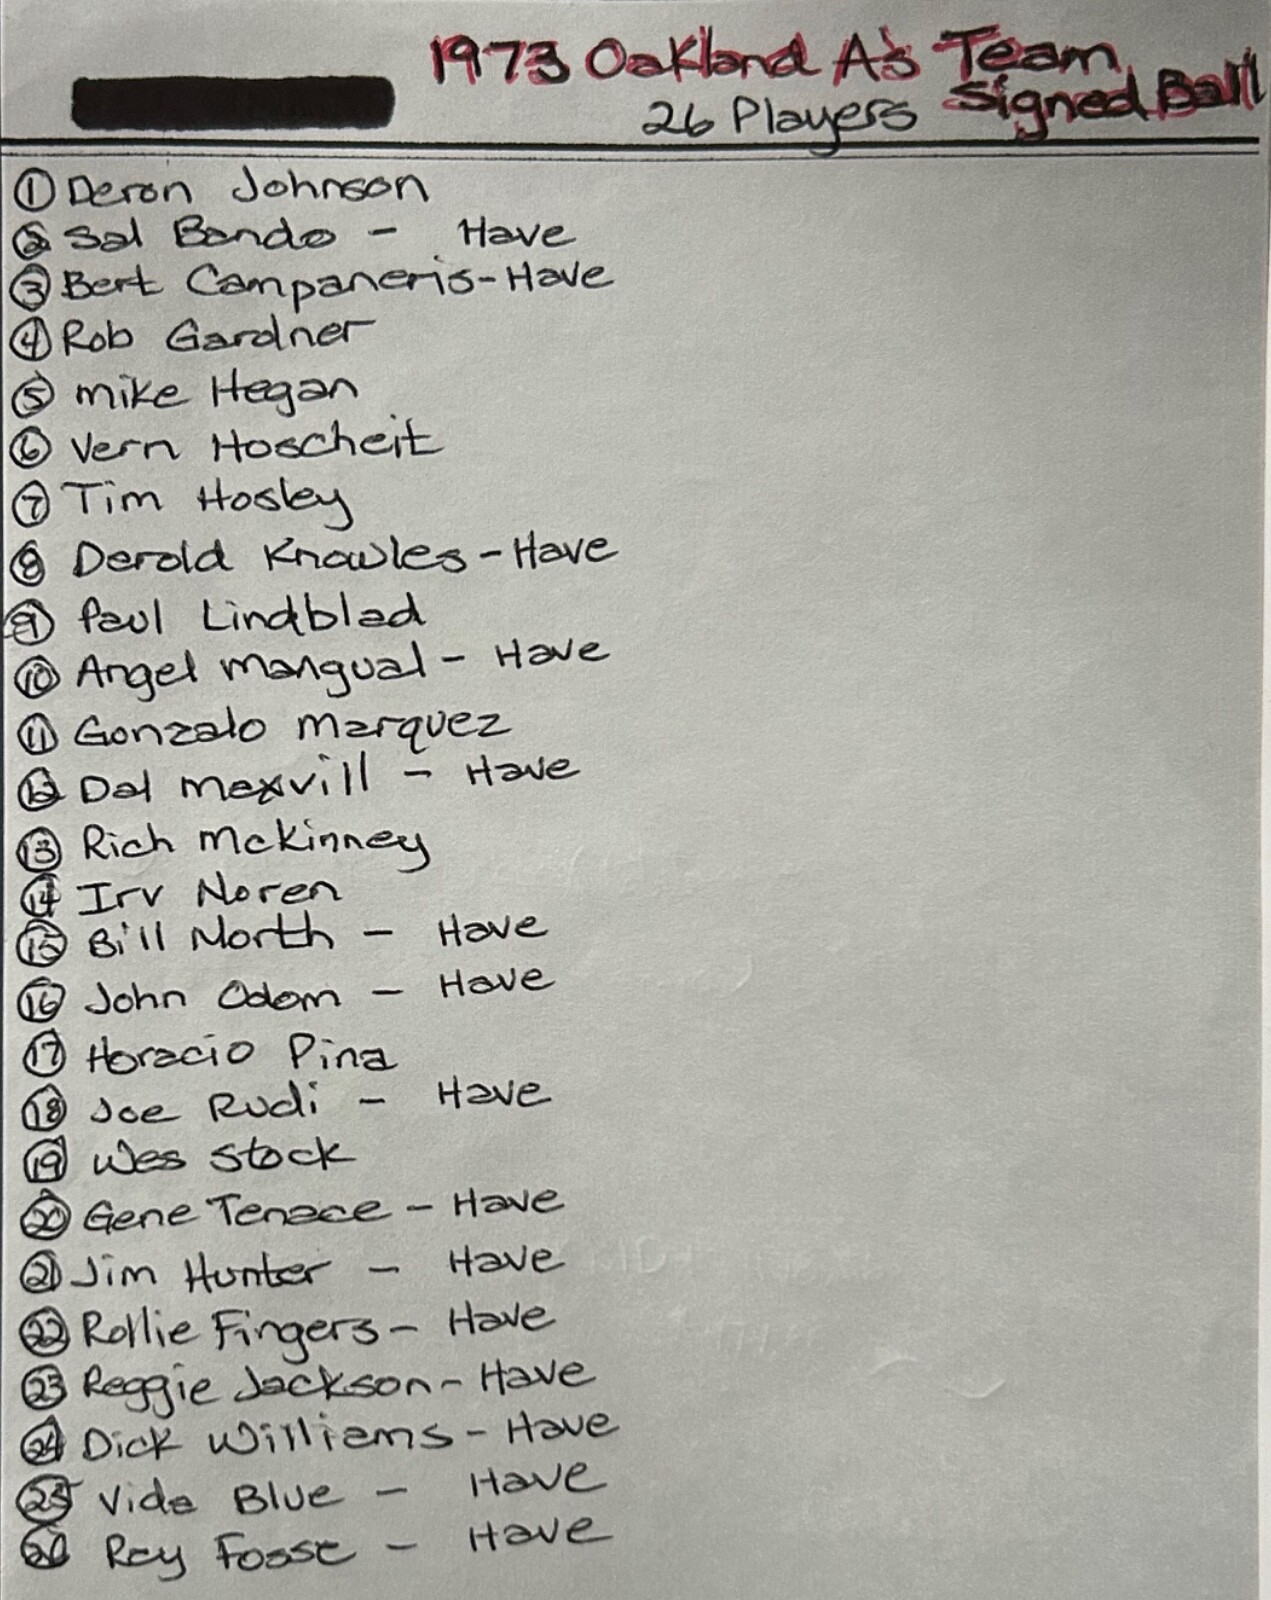 1973 Oakland A's Team
Signed Ball
26 Players
1 Deron Johnson
2 Sal Bando - Have
3 Bert Campaneris - Have
4 Rob Gardner
5 Mike Hegan
6 Vern Hoscheit
7 Tim Hosley
8 Derold Knowles - Have
9 Paul Lindblad
10 Angel Mangual - Have
11 Gonzalo Marquez
12 Dal Maxvill - Have
13 Rich McKinney
14 Irv Noren
15 Bill North - Have
16 John Odom - Have
17 Horacio Pina
18 Joe Rudi - Have
19 Wes Stock
20 Gene Tenace - Have
21 Jim Hunter - Have
22 Rollie Fingers - Have
23 Reggie Jackson - Have
24 Dick Williams - Have
25 Vida Blue - Have
26 Ray Fosse - Have